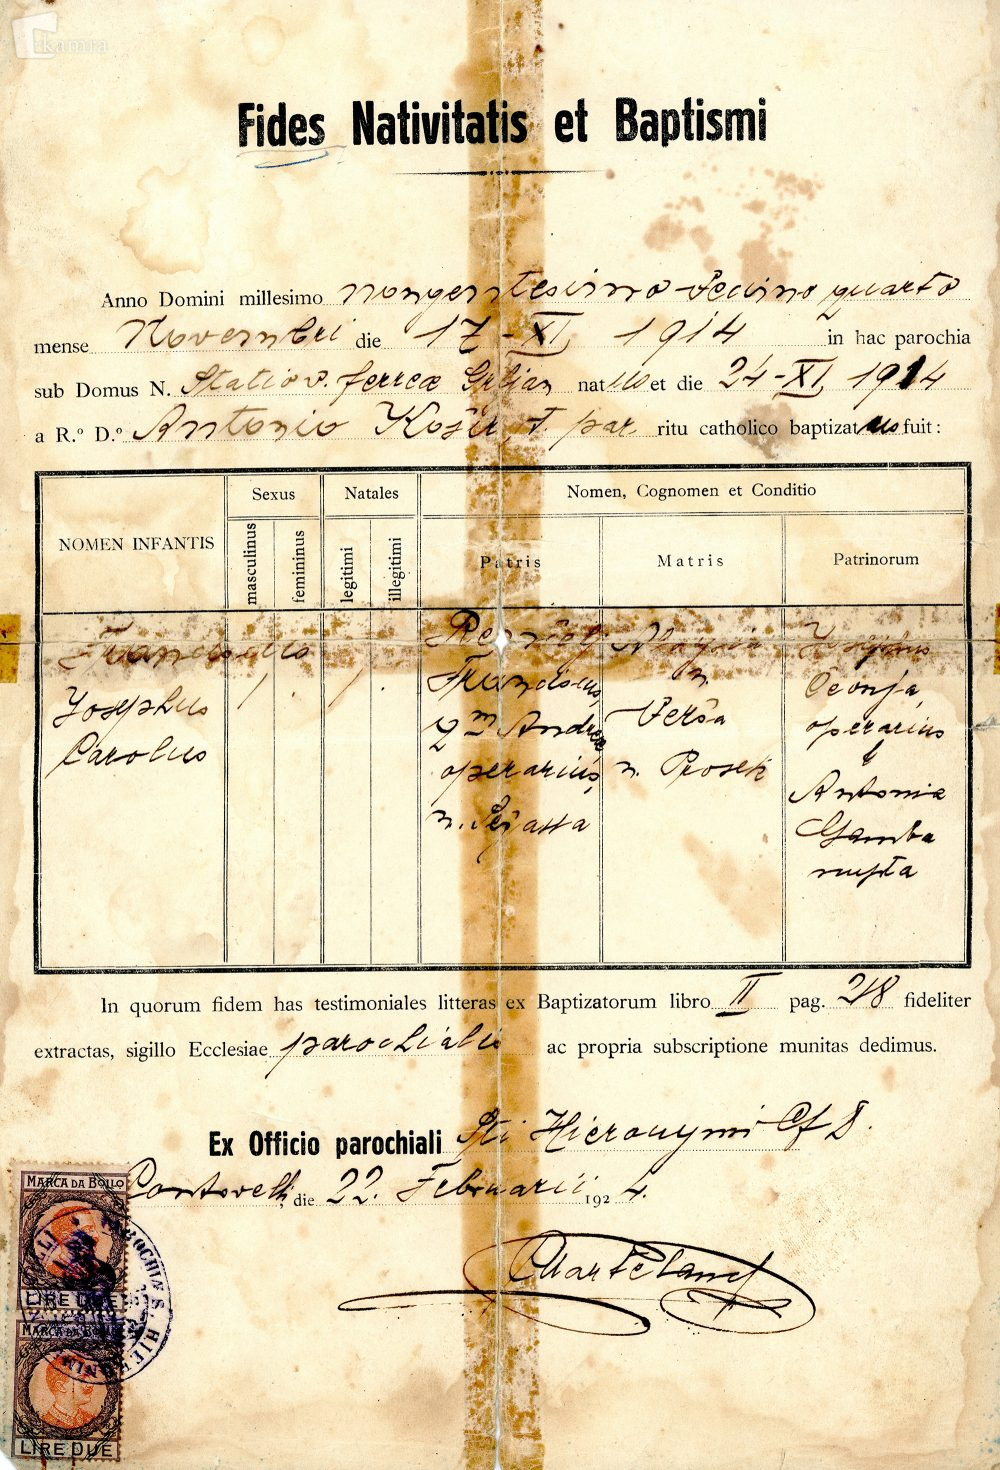 Fides Nativitatis et Baptismi
Anno Domini millesimo nongentesimo decimo quarto
mense Novembri die 17-XI 1914 in hac parochia
sub Domus N. Statio v. ferreæ natus et die 24-XI 1914
a R.º D.º Antonio Košir, par. ritu catholico baptizatus fuit:
NOMEN INFANTIS
Sexus
Natales
Nomen, Cognomen et Conditio
masculinus
femininus
legitimi
illegitimi
Patris
Matris
Patrinorum
Franciscus
Josephus
Carolus
Franciscus,
qm Andreæ
operarius,
n.
Aloysia
n.
Verša
n. Prosek
Josephus
operarius
&
Antonia
Gamba
nupta
In quorum fidem has testimoniales litteras ex Baptizatorum libro II pag. 218 fideliter
extractas, sigillo Ecclesiae parochialis ac propria subscriptione munitas dedimus.
Ex Officio parochiali Sti Hieronymi Cf D.
Contovelli, die 22. Februarii 1924.
MARCA DA BOLLO
LIRE DUE
MARCA DA BOLLO
LIRE DUE
PAROCHIÆ S. HIERONIMI